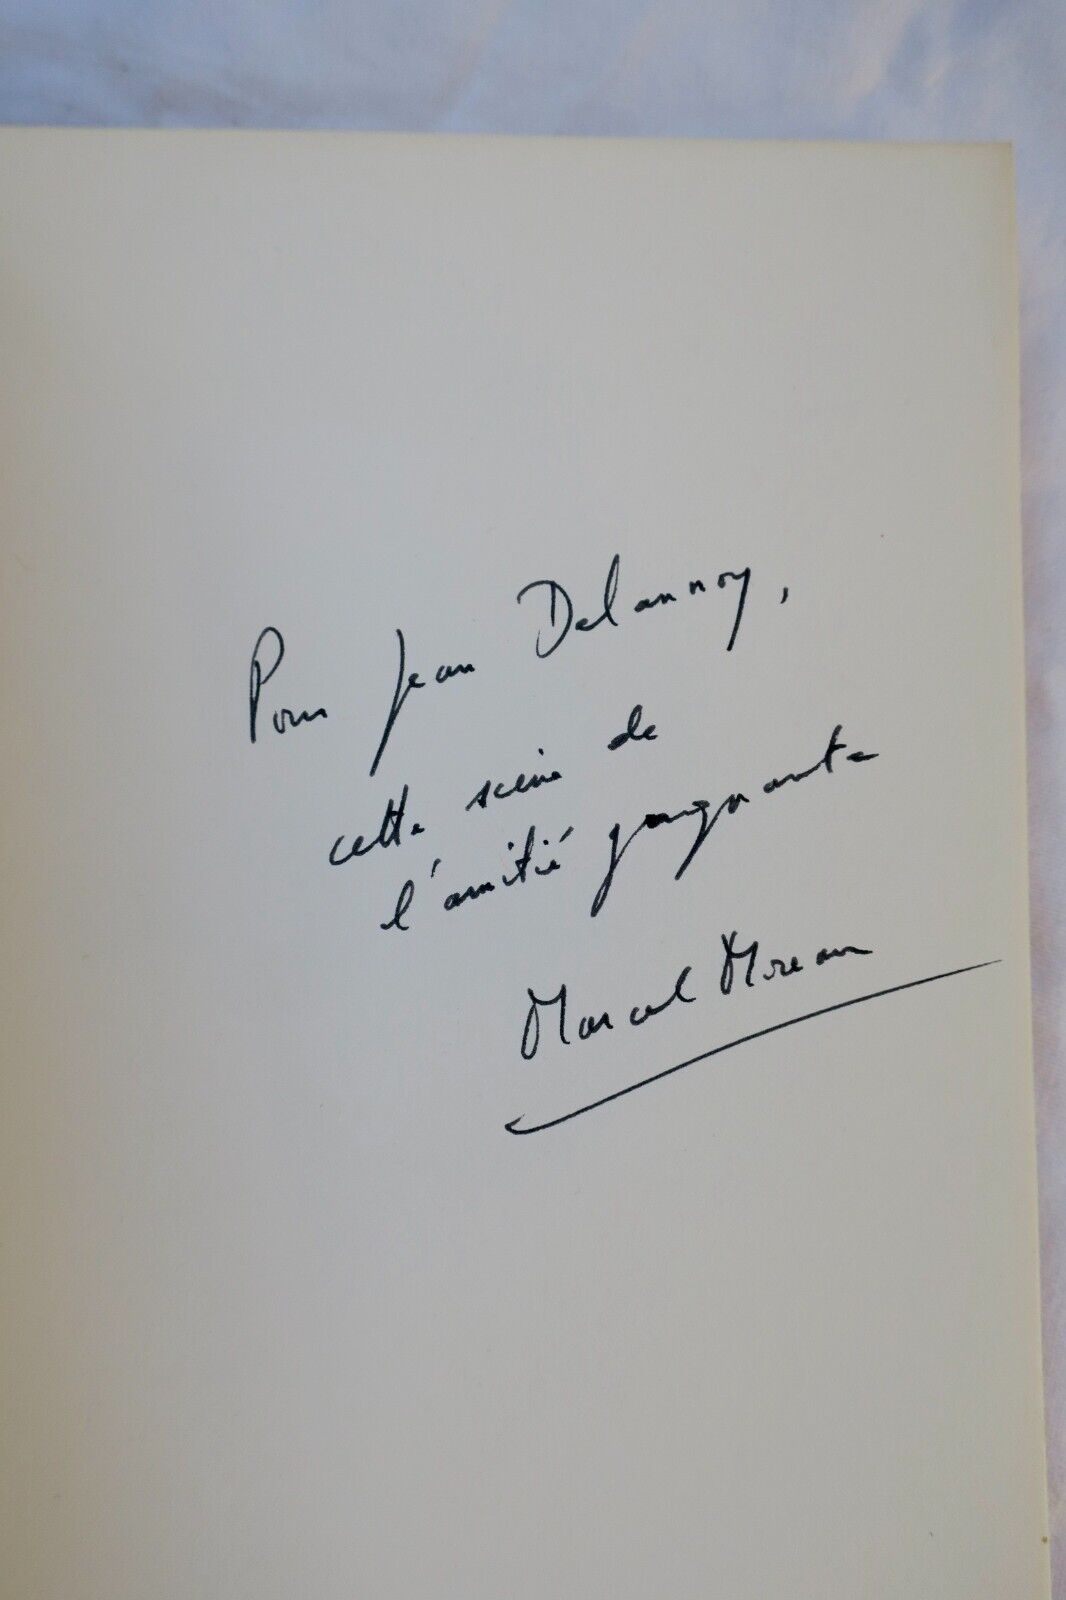 Pour Jean Delannoy,
cette scène de
l'amitié gagnante
Marcel Moreau